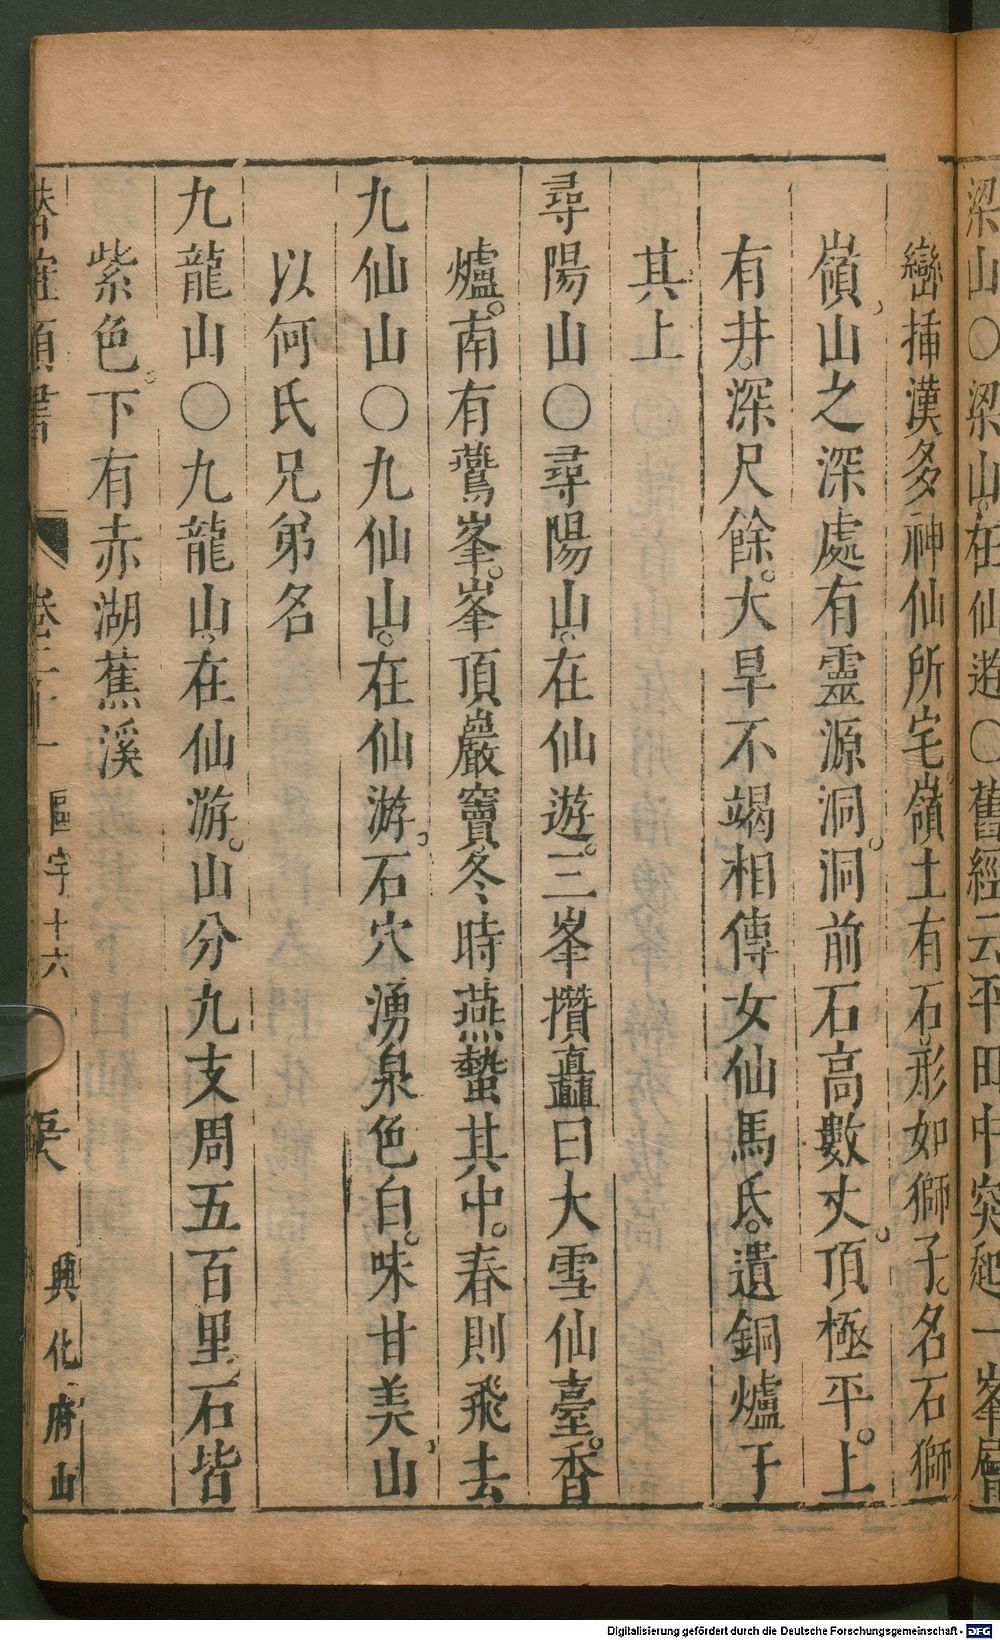 梁山○梁山在仙遊○舊經云平田中突起一峯層
巒揷漢多神仙所宅嶺土有石形如獅子名石獅
嶺山之深處有靈源洞洞前石高數丈頂極平上
有井深尺餘大旱不竭相傳女仙馬氏遺銅爐于
其上
尋陽山○尋陽山在仙遊三峯攢矗曰大雪仙臺香
爐南有鶯峯峯頂巖竇冬時燕蟄其中春則飛去
九仙山○九仙山在仙游石穴湧泉色白味甘美山
以何氏兄弟名
九龍山○九龍山在仙游山分九支周五百里石皆
紫色下有赤湖蕉溪
潛確類書 卷之十一 區宇十六 興化府山
Digitalisierung gefördert durch die Deutsche Forschungsgemeinschaft - DFG